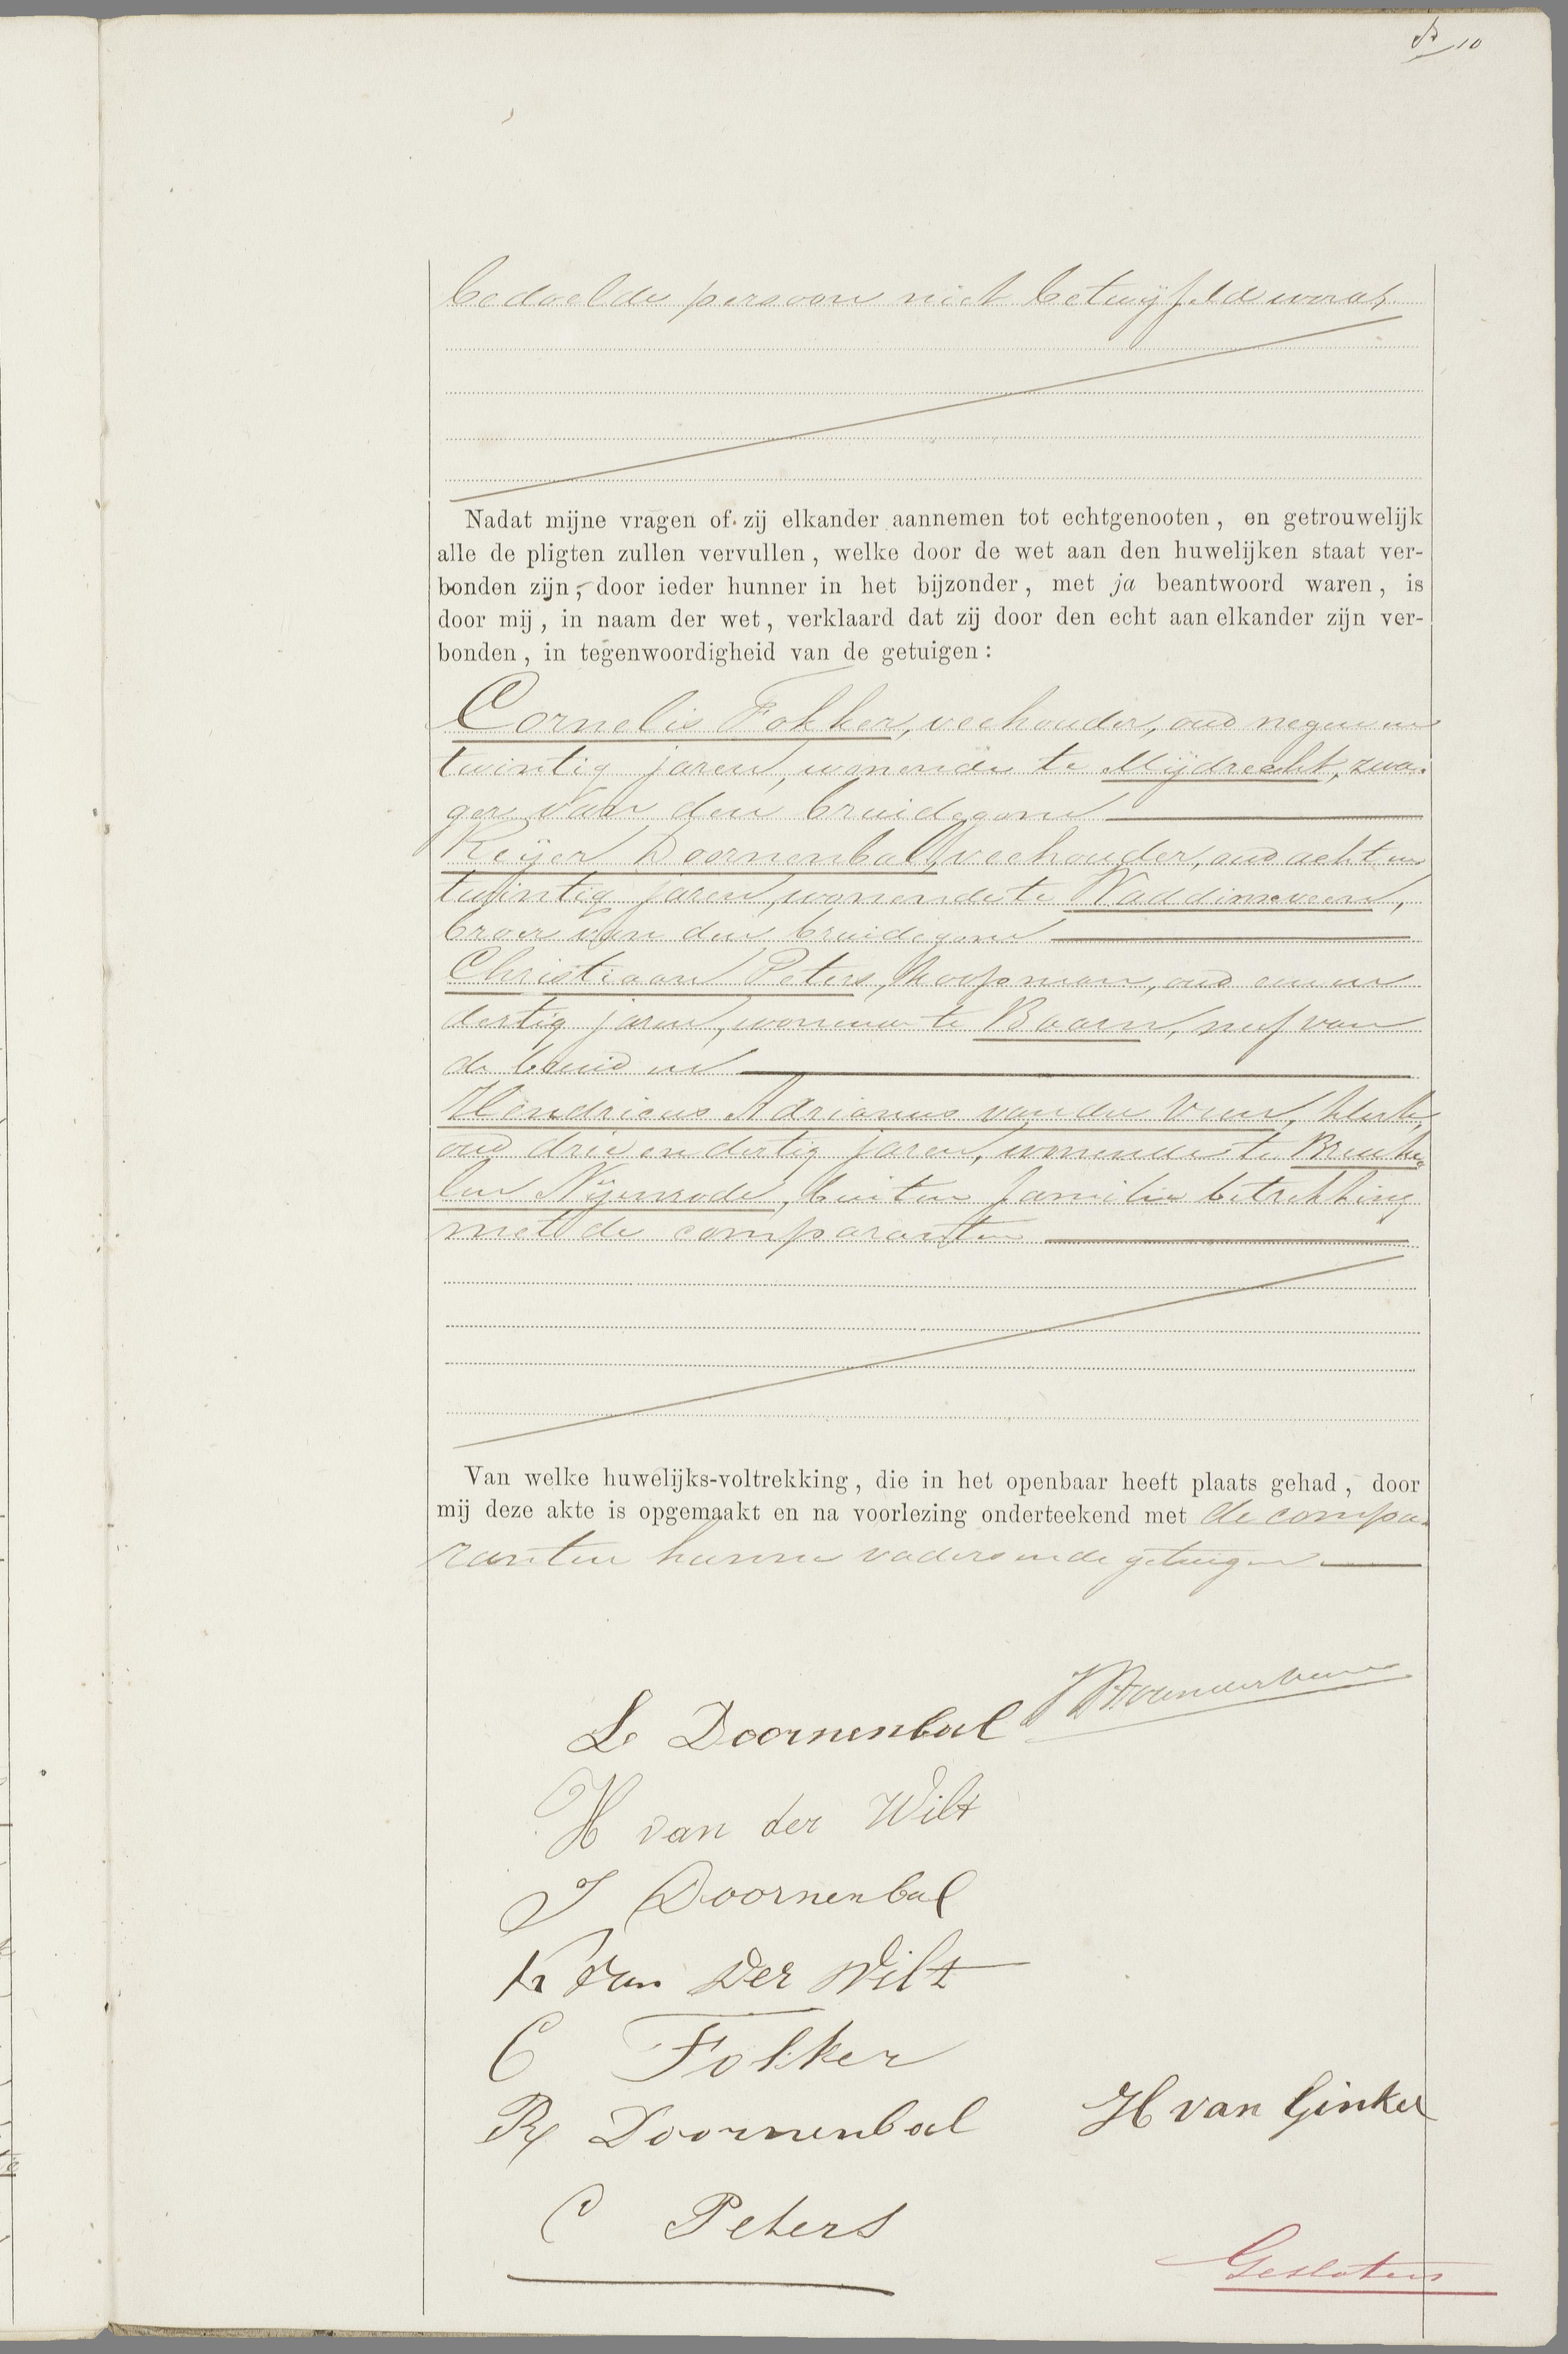 10
bedoelde persoon niet betwijfeld word,
Nadat mijne vragen of zij elkander aannemen tot echtgenooten, en getrouwelijk
alle de pligten zullen vervullen, welke door de wet aan den huwelijken staat ver-
bonden zijn, door ieder hunner in het bijzonder, met ja beantwoord waren, is
door mij, in naam der wet, verklaard dat zij door den echt aan elkander zijn ver-
bonden, in tegenwoordigheid van de getuigen:
Cornelis Fokker, veehouder, oud negen en
twintig jaren, wonende te Mijdrecht, zwa-
ger van den bruidegom
Reijer Doornenbal, veehouder, oud acht en
twintig jaren, wonende te Waddinxveen,
broer van den bruidegom
Christiaan Peters, koopman, oud een en
dertig jaren, wonende te Baarn, neef van
de bruid en
Hendricus Adrianus van der Veer, klerk,
oud drie en dertig jaren, wonende te Breuke-
len Nijenrode, buiten familie betrekking
met de comparanten
Van welke huwelijks-voltrekking, die in het openbaar heeft plaats gehad, door
mij deze akte is opgemaakt en na voorlezing onderteekend met de compa-
ranten hunne vaders en de getuigen
L Doornenbal
H van der Wilt
J Doornenbal
K van der Wilt
C Fokker
R Doornenbal H van Ginkel
C Peters
Gesloten